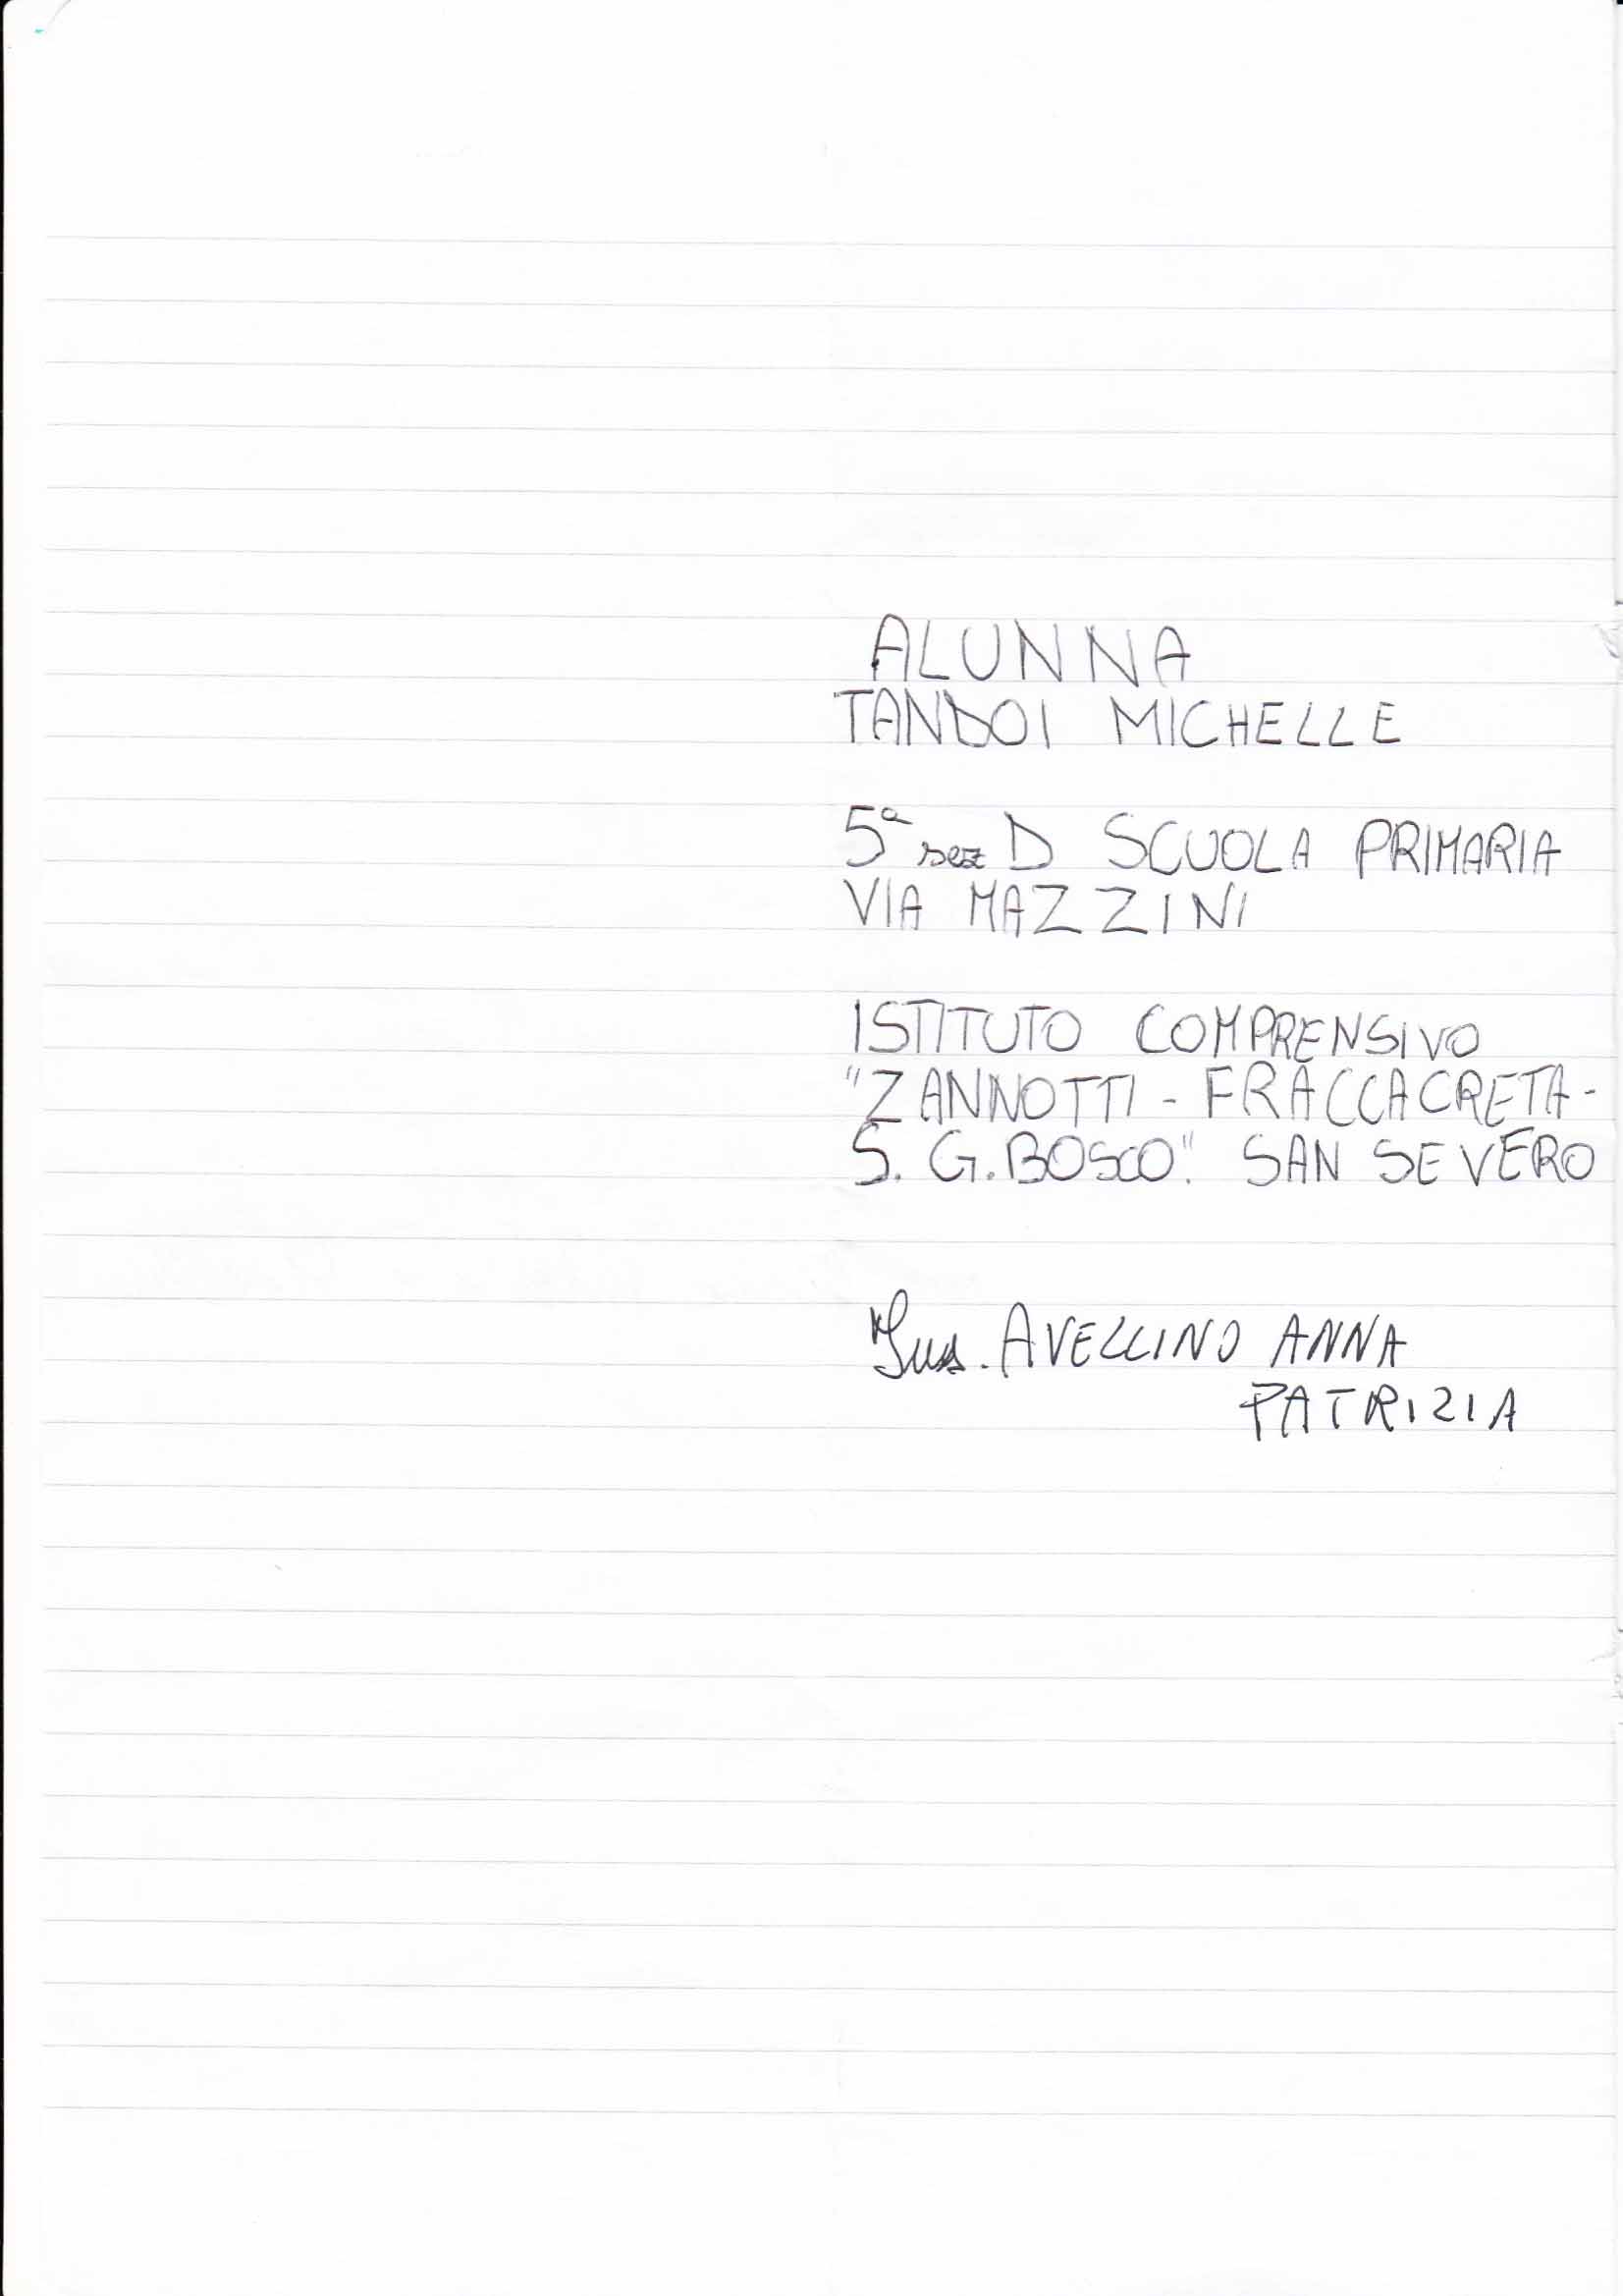 ALUNNA
TANDOI MICHELLE
5ª sez D SCUOLA PRIMARIA
VIA MAZZINI
ISTITUTO COMPRENSIVO
"ZANNOTTI - FRACCACRETA -
S. G. BOSCO". SAN SEVERO
Ins. AVELLINO ANNA
PATRIZIA